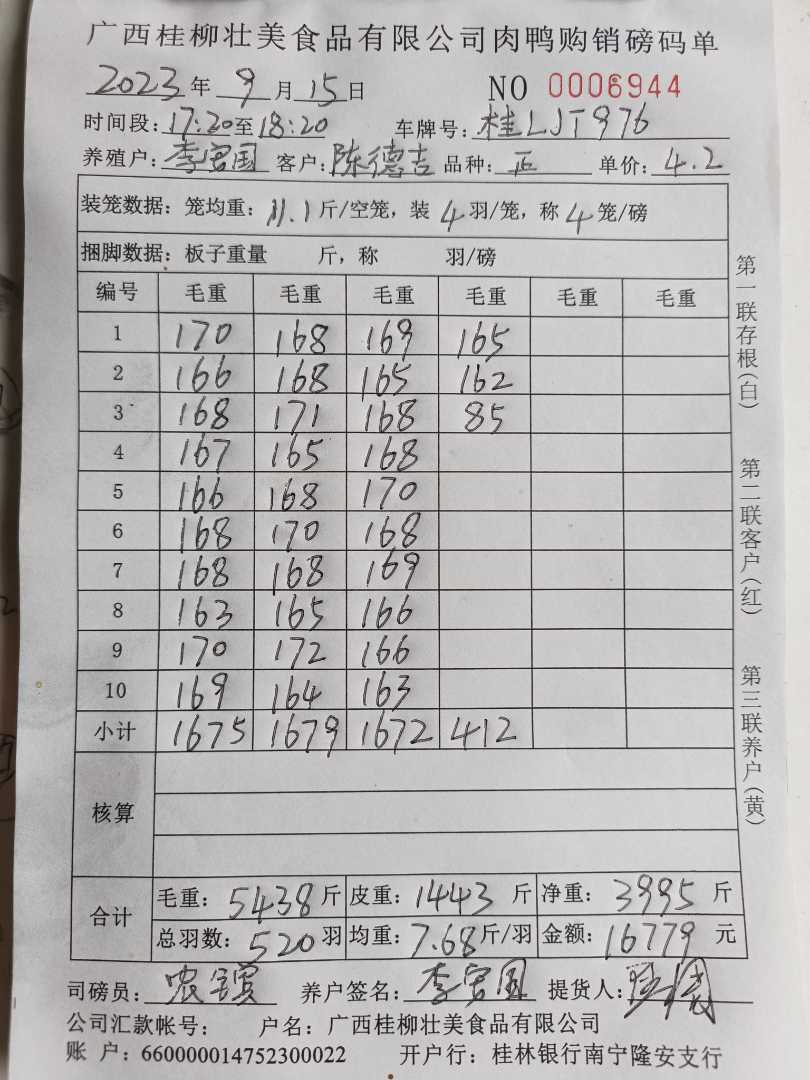 广西桂柳壮美食品有限公司肉鸭购销磅码单
2023年 9月15日 NO 0006944
时间段:17:20至18:20 车牌号:桂LJT976
养殖户:李富国 客户:陈德吉 品种:正 单价:4.2
装笼数据:笼均重:11.1斤/空笼,装4羽/笼,称4笼/磅
捆脚数据:板子重量 斤,称 羽/磅
编号 毛重 毛重 毛重 毛重 毛重 毛重
1 170 168 169 165
2 166 168 165 162
3 168 171 168 85
4 167 165 168
5 166 168 170
6 168 170 168
7 168 168 169
8 163 165 166
9 170 172 166
10 169 164 163
小计 1675 1679 1672 412
核算
合计 毛重:5438斤 皮重:1443斤 净重:3995斤
总羽数:520羽 均重:7.68斤/羽 金额:16779元
司磅员: 养户签名:李富国 提货人:
公司汇款帐号: 户名:广西桂柳壮美食品有限公司
账 户:660000014752300022 开户行:桂林银行南宁隆安支行
第一联存根(白) 第二联客户(红) 第三联养户(黄)